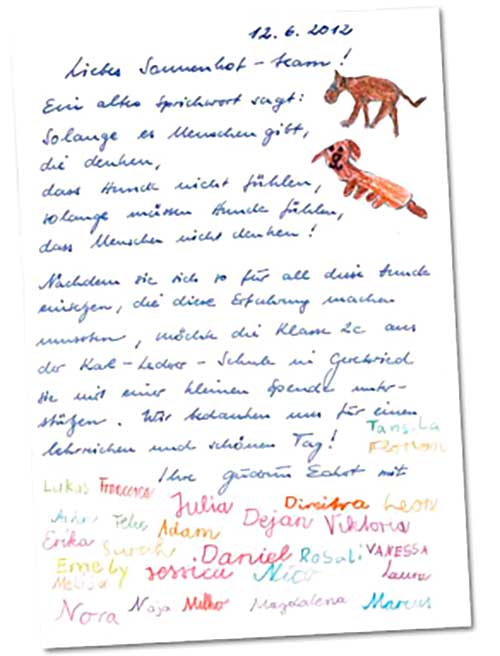 12.6.2012
Liebes Sonnenhof-team!
Ein altes Sprichwort sagt:
Solange es Menschen gibt,
die denken,
dass Hunde nicht fühlen,
solange müssen Hunde fühlen,
dass Menschen nicht denken!
Nachdem sie sich so für all diese Hunde
einsetzen, die diese Erfahrung machen
mussten, möchte die Klasse 2c aus
der Karl-Lederer-Schule in Geretsried
sie mit einer kleinen Spende unter-
stützen. Wir bedanken uns für einen
lehrreichen und schönen Tag!
Ihre mit
Lukas Francesca Julia Dimitra Leon
Felix Adam Dejan Viktoria
Erika Daniel Rosali VANESSA
Emely Jessica Nico Laura
Melisa
Nora Naja Milko Magdalena Marcus